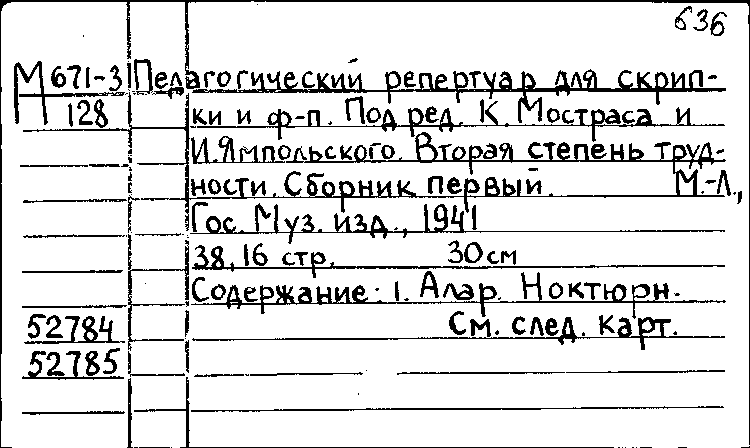 636
М 671-3 Педагогический репертуар для скрип-
128 ки и ф-п. Под ред. К. Мостраса и
И. Ямпольского. Вторая степень труд-
ности. Сборник первый. М.-Л.,
Гос. Муз. изд., 1941
38, 16 стр. 30 см
Содержание: 1. Алар. Ноктюрн.
52784 См. след. карт.
52785